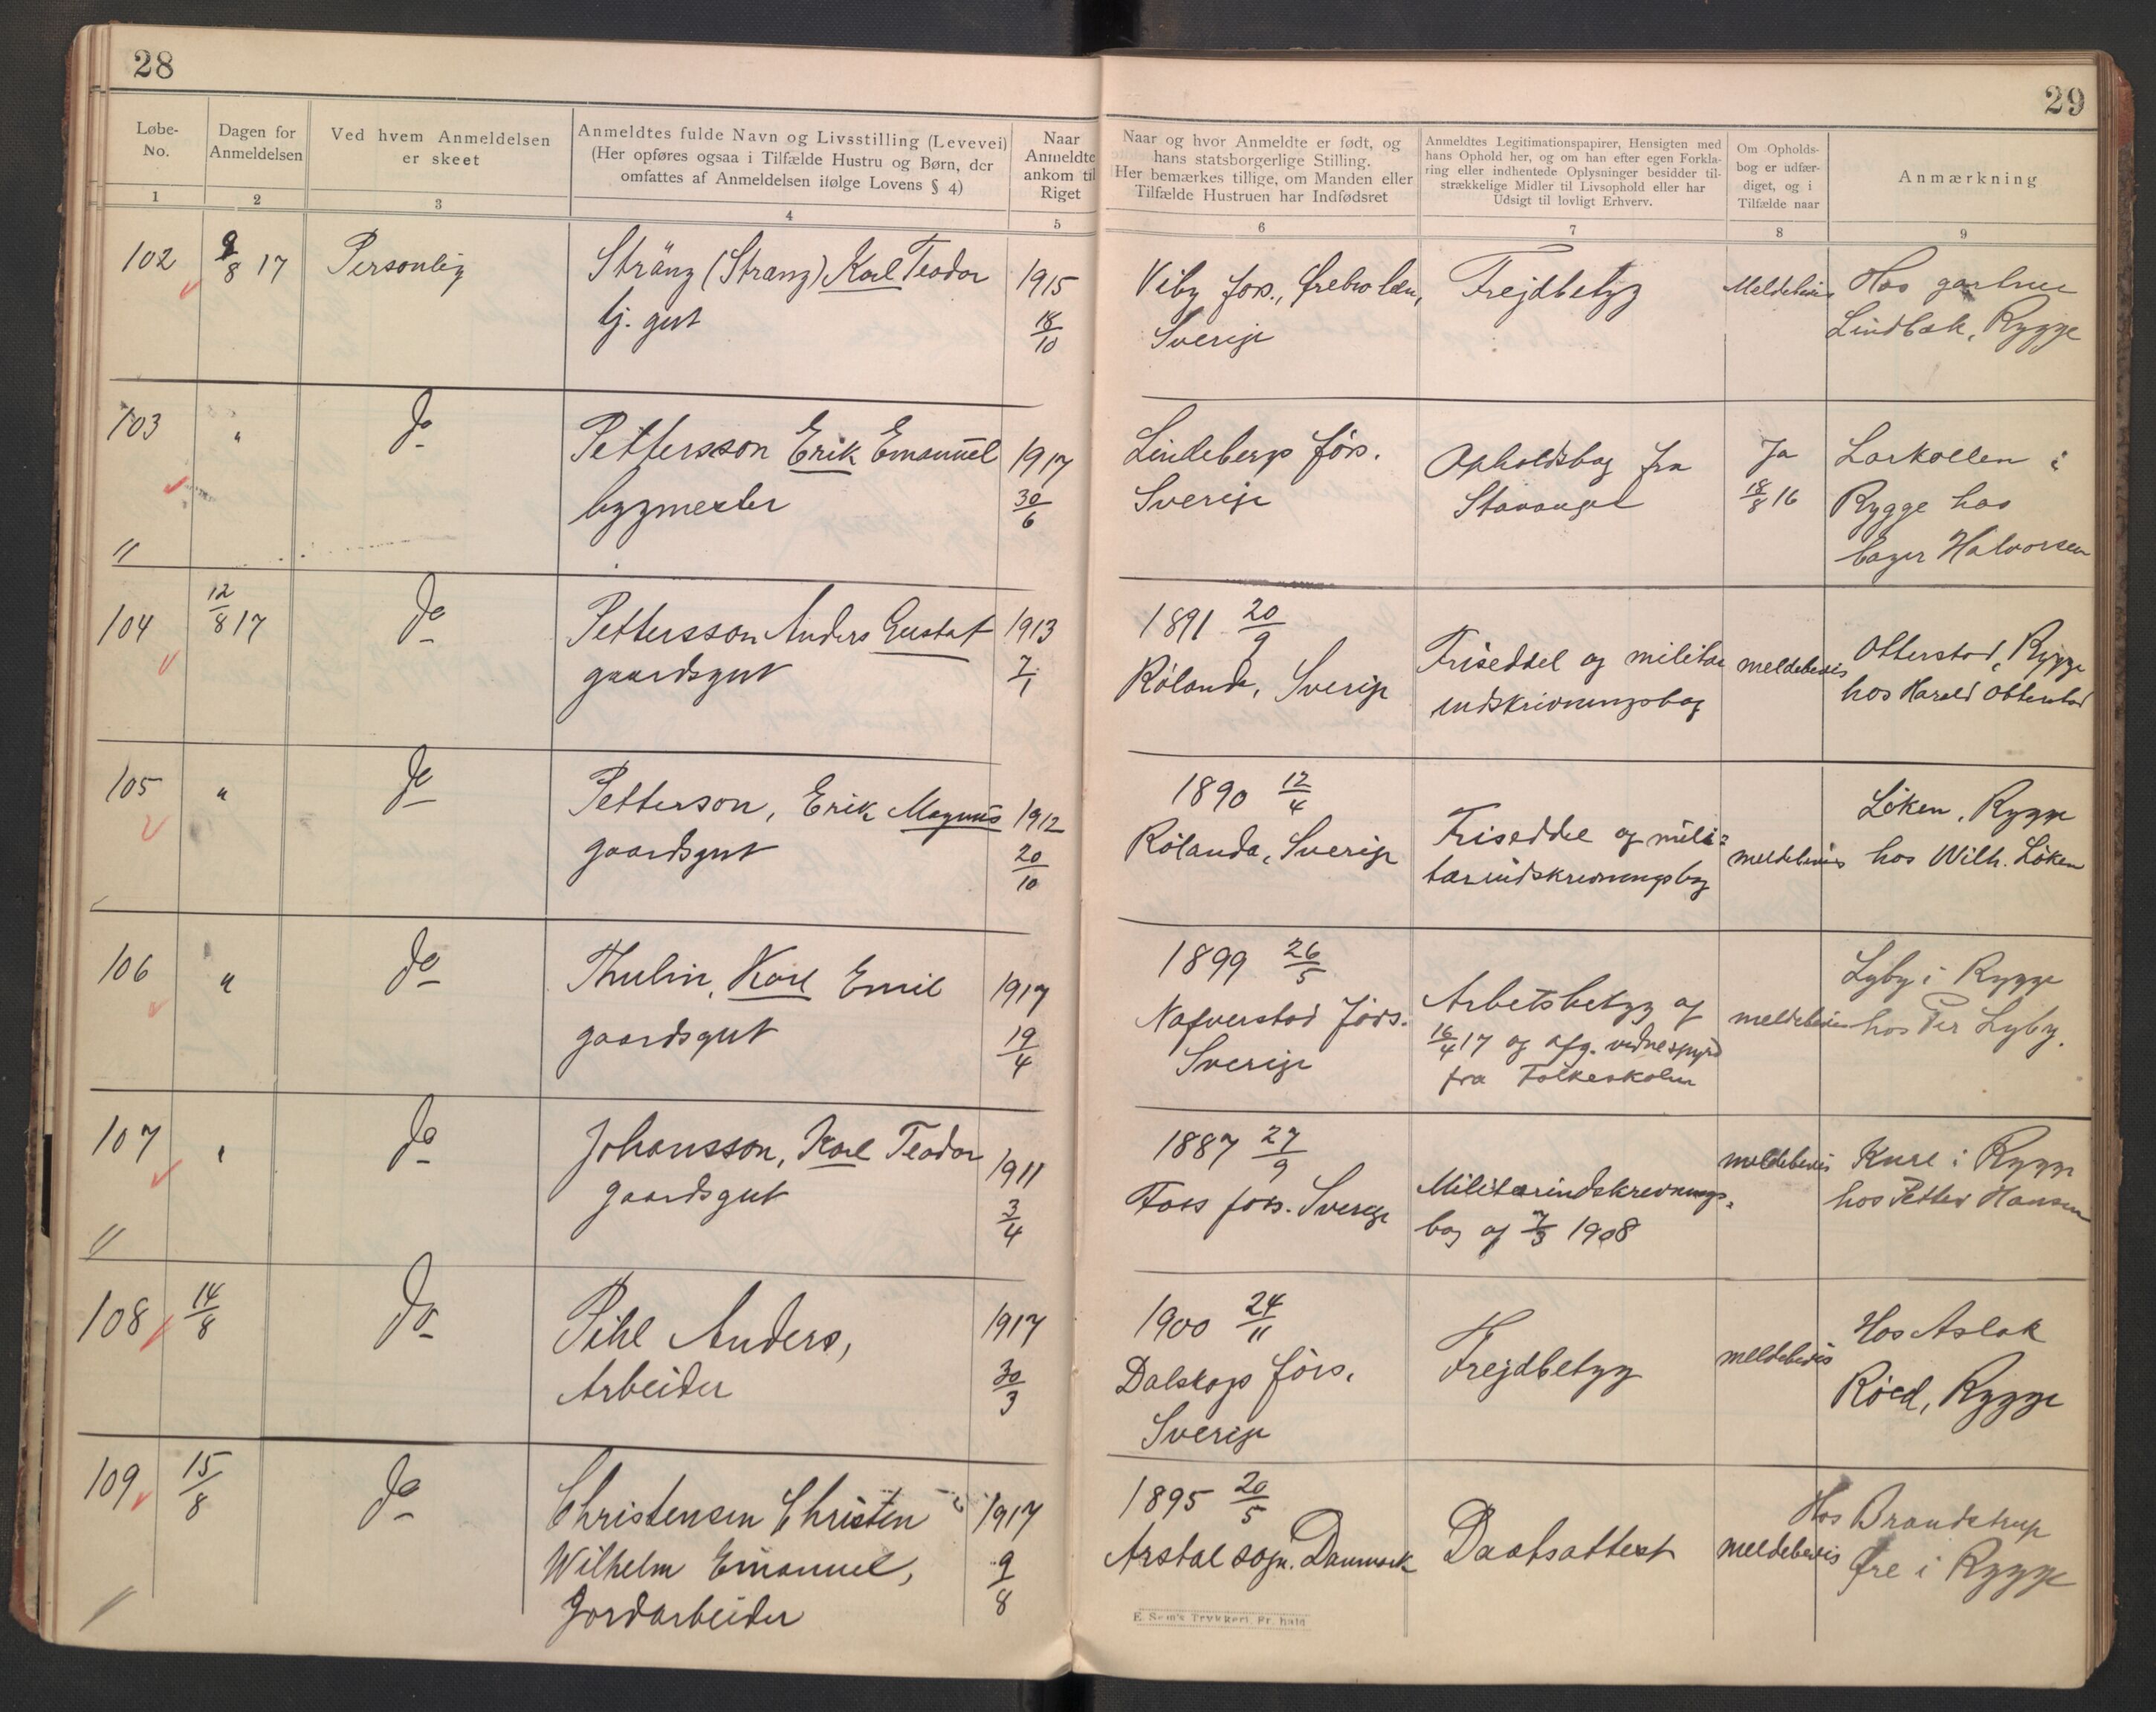 28
29
Løbe-No.
Dagen for Anmeldelsen
Ved hvem Anmeldelsen er skeet
Anmeldtes fulde Navn og Livsstilling (Levevei)
(Her opføres ogsaa i Tilfælde Hustru og Børn, der
omfattes af Anmeldelsen ifølge Lovens § 4)
Naar Anmeldte ankom til Riget
Naar og hvor Anmeldte er født, og
hans statsborgerlige Stilling.
Her bemærkes tillige, om Manden eller
Tilfælde Hustruen har Indfødsret
Anmeldtes Legitimationspapirer, Hensigten med
hans Ophold her, og om han efter egen Forkla-
ring eller indhentede Oplysninger besidder til-
strækkelige Midler til Livsophold eller har
Udsigt til lovligt Erhverv.
Om Opholds-
bog er udfær-
diget, og i
Tilfælde naar
Anmærkning
1 2 3 4 5 6 7 8 9
102 9/8 17 Personlig Stränz (Stranz) Karl Teodor 1915 Vibyförs., Ørebro län, Frejdbetyg Meldebevis Hos gartner
tj. gut 18/10 Sverige Lindbæk, Rygge
103 " do Pettersson Erik Emanuel 1917 Lindebergs förs. Opholdsbog fra Ja Larkollen i
bygmester 30/6 Sverige Stavanger 18/8 16 Rygge hos
Halvorsen
104 12/8 17 do Pettersson Anders Gustaf 1913 1891 20/9 Friseddel og militær meldebevis Otterstad, Rygge
gaardsgut 7/1 Rölanda, Sverige indskrivningsbog hos Harald Otterstad
105 " do Petterson, Erik Magnus 1912 1890 12/4 Friseddel og mili- meldebevis Löken, Rygge
gaardsgut 20/10 Rölanda, Sverige tærindskrivningsbog hos Wilh. Löken
106 " do Thulin, Karl Emil 1917 1899 26/5 Arbetsbetyg af meldebevis Lyby i Rygge
gaardsgut 19/4 Nafverstad förs. 16/4 17 og afg. vidnesbyrd hos Per Lyby.
Sverige fra Folkeskolen
107 " do Johansson, Karl Teodor 1911 1887 27/9 Militærindskrivnings- meldebevis Kure i Rygge
gaardsgut 3/4 Foss förs. Sverige bog af 7/3 1908 hos Petter Hansen
108 14/8 do Pihl Anders, 1917 1900 24/11 Frejdbetyg meldebevis Hos Aslak
Arbeider 30/3 Dalskogs förs. Röed, Rygge
Sverige
109 15/8 do Christensen Christen 1917 1895 20/5 Daabsattest meldebevis Hos Brandstrup
Wilhelm Emanuel, 9/8 Arstal sogn. Danmark Øre i Rygge
Jordarbeider
E. Sem's Trykkeri, Fr.hald